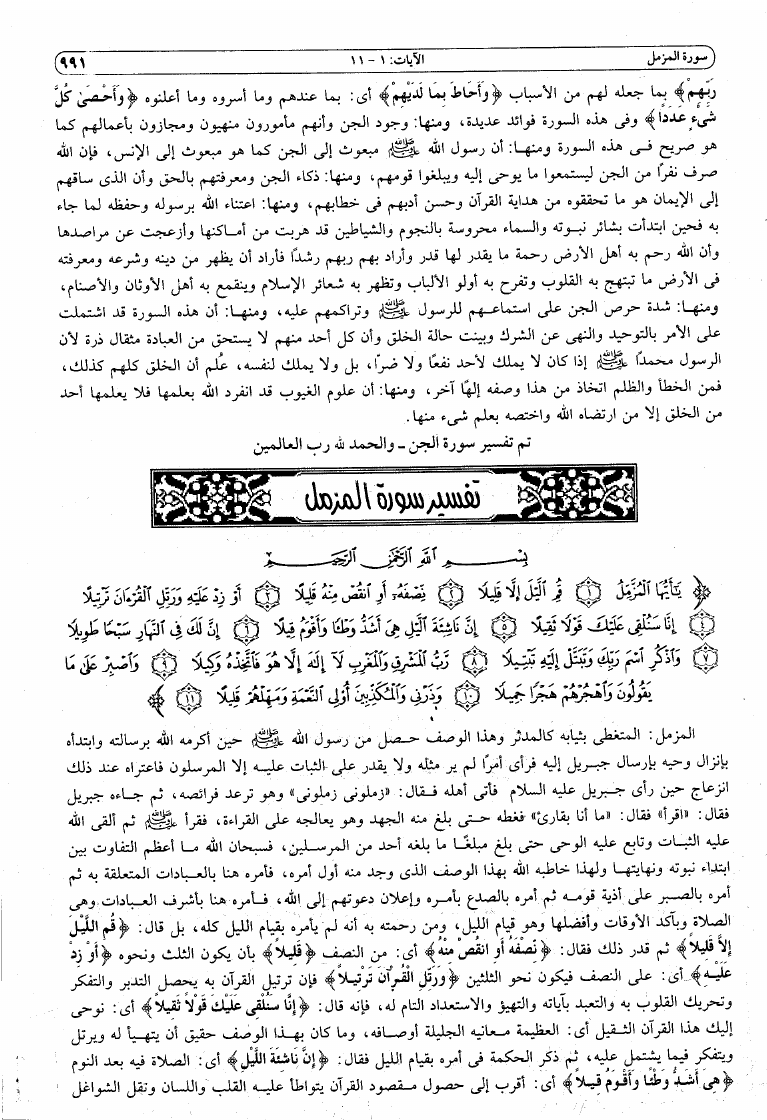 سورة المزمل
الآيات: ١ - ١١
٩٩١
رَبِّهِمْ﴾ بما جعله لهم من الأسباب ﴿وَأَحَاطَ بِمَا لَدَيْهِمْ﴾ أى: بما عندهم وما أسروه وما أعلنوه ﴿وَأَحْصَىٰ كُلَّ
شَىْءٍ عَدَدًا﴾ وفى هذه السورة فوائد عديدة، ومنها: وجود الجن وأنهم مأمورون منهيون ومجازون بأعمالهم كما
هو صريح فى هذه السورة ومنها: أن رسول الله ﷺ مبعوث إلى الجن كما هو مبعوث إلى الإنس، فإن الله
صرف نفرًا من الجن ليستمعوا ما يوحى إليه ويبلغوا قومهم، ومنها: ذكاء الجن ومعرفتهم بالحق وأن الذى ساقهم
إلى الإيمان هو ما تحققوه من هداية القرآن وحسن أدبهم فى خطابهم، ومنها: اعتناء الله برسوله وحفظه لما جاء
به فحين ابتدأت بشائر نبوته والسماء محروسة بالنجوم والشياطين قد هربت من أماكنها وأزعجت عن مراصدها
وأن الله رحم به أهل الأرض رحمة ما يقدر لها قدر وأراد بهم ربهم رشدًا فأراد أن يظهر من دينه وشرعه ومعرفته
فى الأرض ما تبتهج به القلوب وتفرح به أولو الألباب وتظهر به شعائر الإسلام وينقمع به أهل الأوثان والأصنام،
ومنها: شدة حرص الجن على استماعهم للرسول ﷺ وتراكمهم عليه، ومنها: أن هذه السورة قد اشتملت
على الأمر بالتوحيد والنهى عن الشرك وبينت حالة الخلق وأن كل أحد منهم لا يستحق من العبادة مثقال ذرة لأن
الرسول محمدًا ﷺ إذا كان لا يملك لأحد نفعًا ولا ضرًا، بل ولا يملك لنفسه، عُلم أن الخلق كلهم كذلك،
فمن الخطأ والظلم اتخاذ من هذا وصفه إلهًا آخر، ومنها: أن علوم الغيوب قد انفرد الله بعلمها فلا يعلمها أحد
من الخلق إلا من ارتضاه الله واختصه بعلم شىء منها.
تم تفسير سورة الجن ـ والحمد لله رب العالمين
تفسير سورة المزمل
بِسْمِ ٱللَّهِ ٱلرَّحْمَٰنِ ٱلرَّحِيمِ
﴿ يَٰٓأَيُّهَا ٱلْمُزَّمِّلُ ١ قُمِ ٱلَّيْلَ إِلَّا قَلِيلًا ٢ نِّصْفَهُۥٓ أَوِ ٱنقُصْ مِنْهُ قَلِيلًا ٣ أَوْ زِدْ عَلَيْهِ وَرَتِّلِ ٱلْقُرْءَانَ تَرْتِيلًا
٤ إِنَّا سَنُلْقِى عَلَيْكَ قَوْلًا ثَقِيلًا ٥ إِنَّ نَاشِئَةَ ٱلَّيْلِ هِىَ أَشَدُّ وَطْـًٔا وَأَقْوَمُ قِيلًا ٦ إِنَّ لَكَ فِى ٱلنَّهَارِ سَبْحًا طَوِيلًا
٧ وَٱذْكُرِ ٱسْمَ رَبِّكَ وَتَبَتَّلْ إِلَيْهِ تَبْتِيلًا ٨ رَّبُّ ٱلْمَشْرِقِ وَٱلْمَغْرِبِ لَآ إِلَٰهَ إِلَّا هُوَ فَٱتَّخِذْهُ وَكِيلًا ٩ وَٱصْبِرْ عَلَىٰ مَا
يَقُولُونَ وَٱهْجُرْهُمْ هَجْرًا جَمِيلًا ١٠ وَذَرْنِى وَٱلْمُكَذِّبِينَ أُو۟لِى ٱلنَّعْمَةِ وَمَهِّلْهُمْ قَلِيلًا ١١ ﴾
المزمل: المتغطى بثيابه كالمدثر وهذا الوصف حصل من رسول الله ﷺ حين أكرمه الله برسالته وابتدأه
بإنزال وحيه بإرسال جبريل إليه فرأى أمرًا لم ير مثله ولا يقدر على الثبات عليه إلا المرسلون فاعتراه عند ذلك
انزعاج حين رأى جبريل عليه السلام فأتى أهله فقال: «زملونى زملونى» وهو ترعد فرائصه، ثم جاءه جبريل
فقال: «اقرأ» فقال: «ما أنا بقارئ» فغطه حتى بلغ منه الجهد وهو يعالجه على القراءة، فقرأ ﷺ ثم ألقى الله
عليه الثبات وتابع عليه الوحى حتى بلغ مبلغًا ما بلغه أحد من المرسلين، فسبحان الله ما أعظم التفاوت بين
ابتداء نبوته ونهايتها ولهذا خاطبه الله بهذا الوصف الذى وجد منه أول أمره، فأمره هنا بالعبادات المتعلقة به ثم
أمره بالصبر على أذية قومه ثم أمره بالصدع بأمره وإعلان دعوتهم إلى الله، فأمره هنا بأشرف العبادات وهى
الصلاة وبآكد الأوقات وأفضلها وهو قيام الليل، ومن رحمته به أنه لم يأمره بقيام الليل كله، بل قال: ﴿قُمِ اللَّيْلَ
إِلَّا قَلِيلًا﴾ ثم قدر ذلك فقال: ﴿نِّصْفَهُ أَوِ انقُصْ مِنْهُ﴾ أى: من النصف ﴿قَلِيلًا﴾ بأن يكون الثلث ونحوه ﴿أَوْ زِدْ
عَلَيْهِ﴾ أى: على النصف فيكون نحو الثلثين ﴿وَرَتِّلِ الْقُرْآنَ تَرْتِيلًا﴾ فإن ترتيل القرآن به يحصل التدبر والتفكر
وتحريك القلوب به والتعبد بآياته والتهيؤ والاستعداد التام له، فإنه قال: ﴿إِنَّا سَنُلْقِى عَلَيْكَ قَوْلًا ثَقِيلًا﴾ أى: نوحى
إليك هذا القرآن الثقيل أى: العظيمة معانيه الجليلة أوصافه، وما كان بهذا الوصف حقيق أن يتهيأ له ويرتل
ويتفكر فيما يشتمل عليه، ثم ذكر الحكمة فى أمره بقيام الليل فقال: ﴿إِنَّ نَاشِئَةَ اللَّيْلِ﴾ أى: الصلاة فيه بعد النوم
﴿هِىَ أَشَدُّ وَطْئًا وَأَقْوَمُ قِيلًا﴾ أى: أقرب إلى حصول مقصود القرآن يتواطأ عليه القلب واللسان وتقل الشواغل